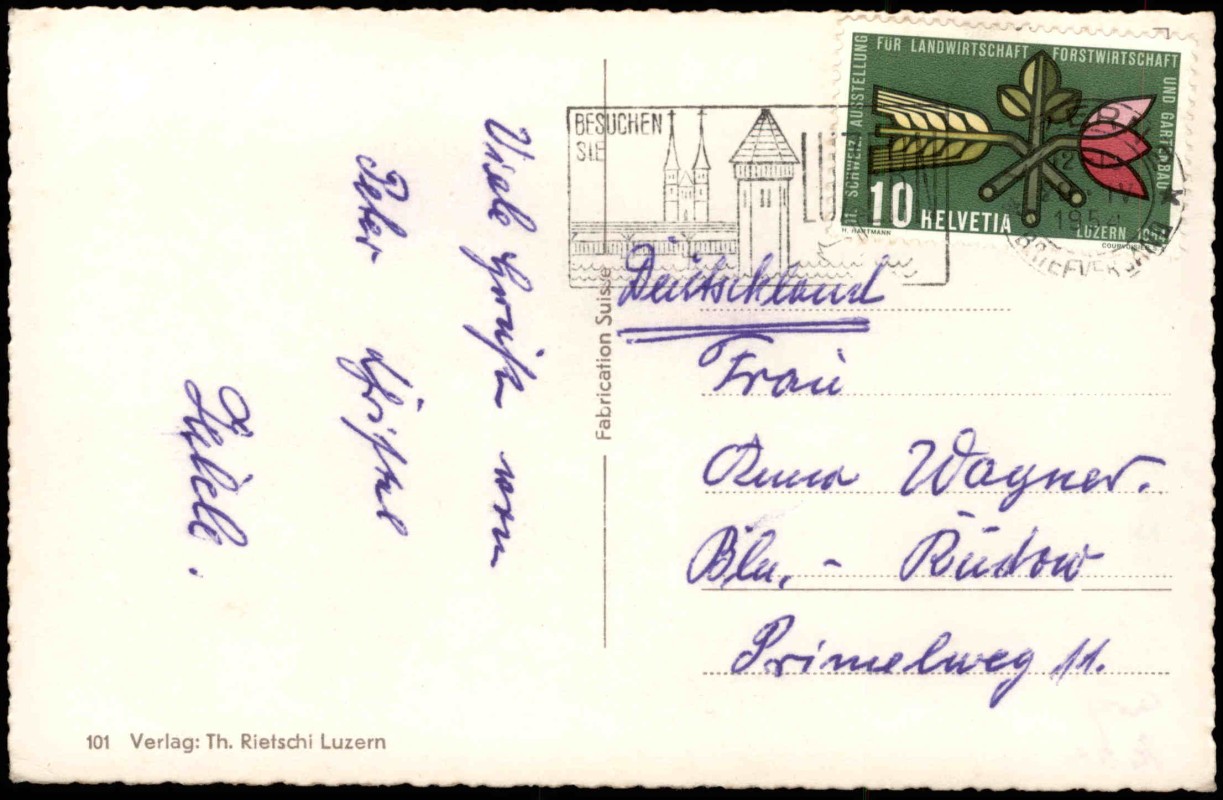 Viele Grüße vom
Peter
BESUCHEN
SIE
LUZERN
11. SCHWEIZ. AUSSTELLUNG FÜR LANDWIRTSCHAFT FORSTWIRTSCHAFT UND GARTENBAU
10 HELVETIA
LUZERN 1954
H. HARTMANN
COURVOISIER
LUZERN
12
IV
1954
BRIEFVERSAND
Fabrication Suisse
Deutschland
Frau
Anna Wagner.
Bln. - Rudow
Primelweg 11.
101 Verlag: Th. Rietschi Luzern